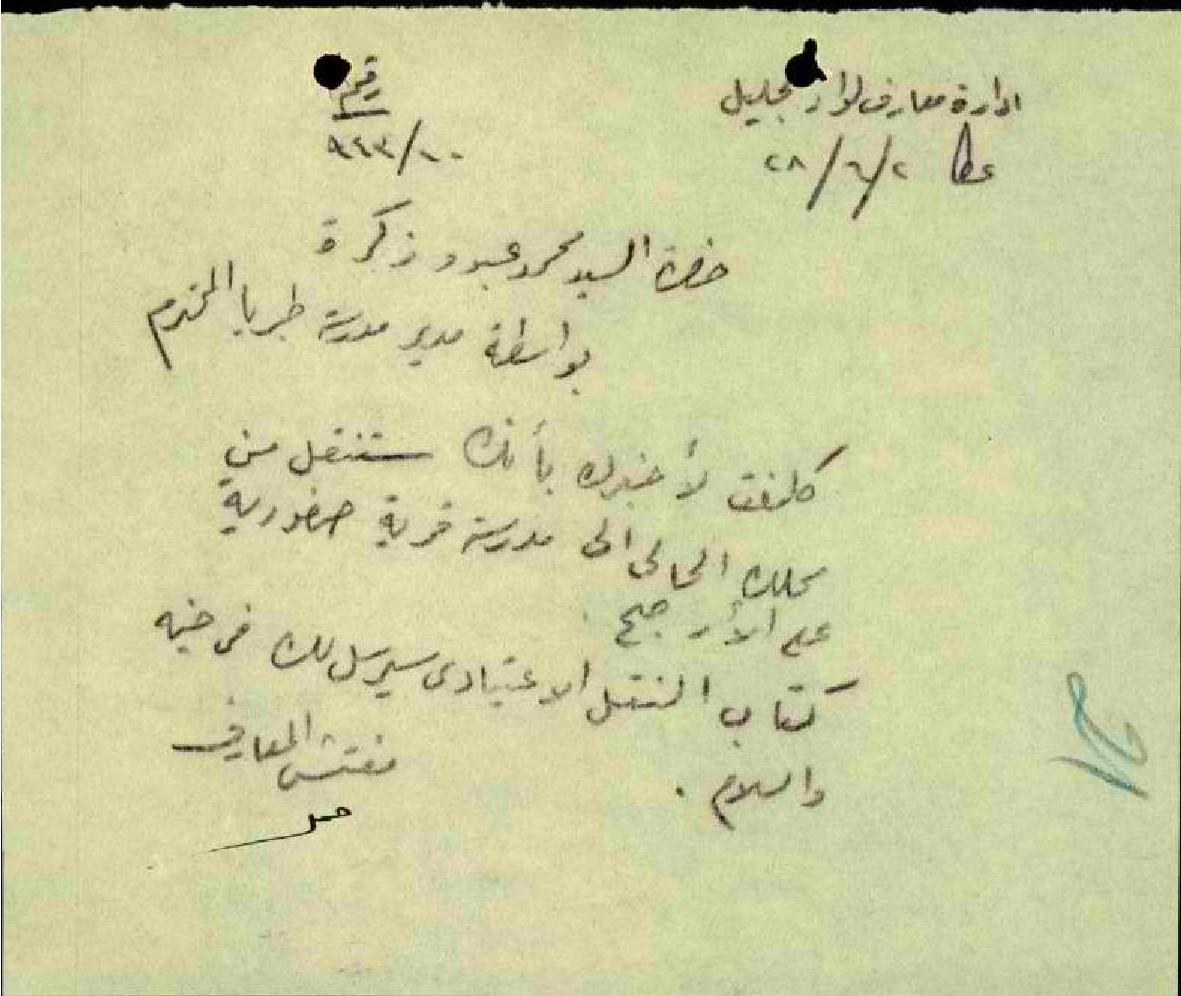 ادارة معارف لواء الجليل
عكا ٢٨/٦/٢
رقم
١٠٠/٩٤٣
حضرة السيد محمد عبود زكرة
بواسطة مدير مدرسة طبريا المحترم
كلفت لأخبرك بأنك ستنقل من
محلك الحالى الى مدرسة قرية صفورية
على الأرجح .
كتاب النقل الاعتيادى سيرسل لك فى حينه
والسلام .
مفتش المعارف